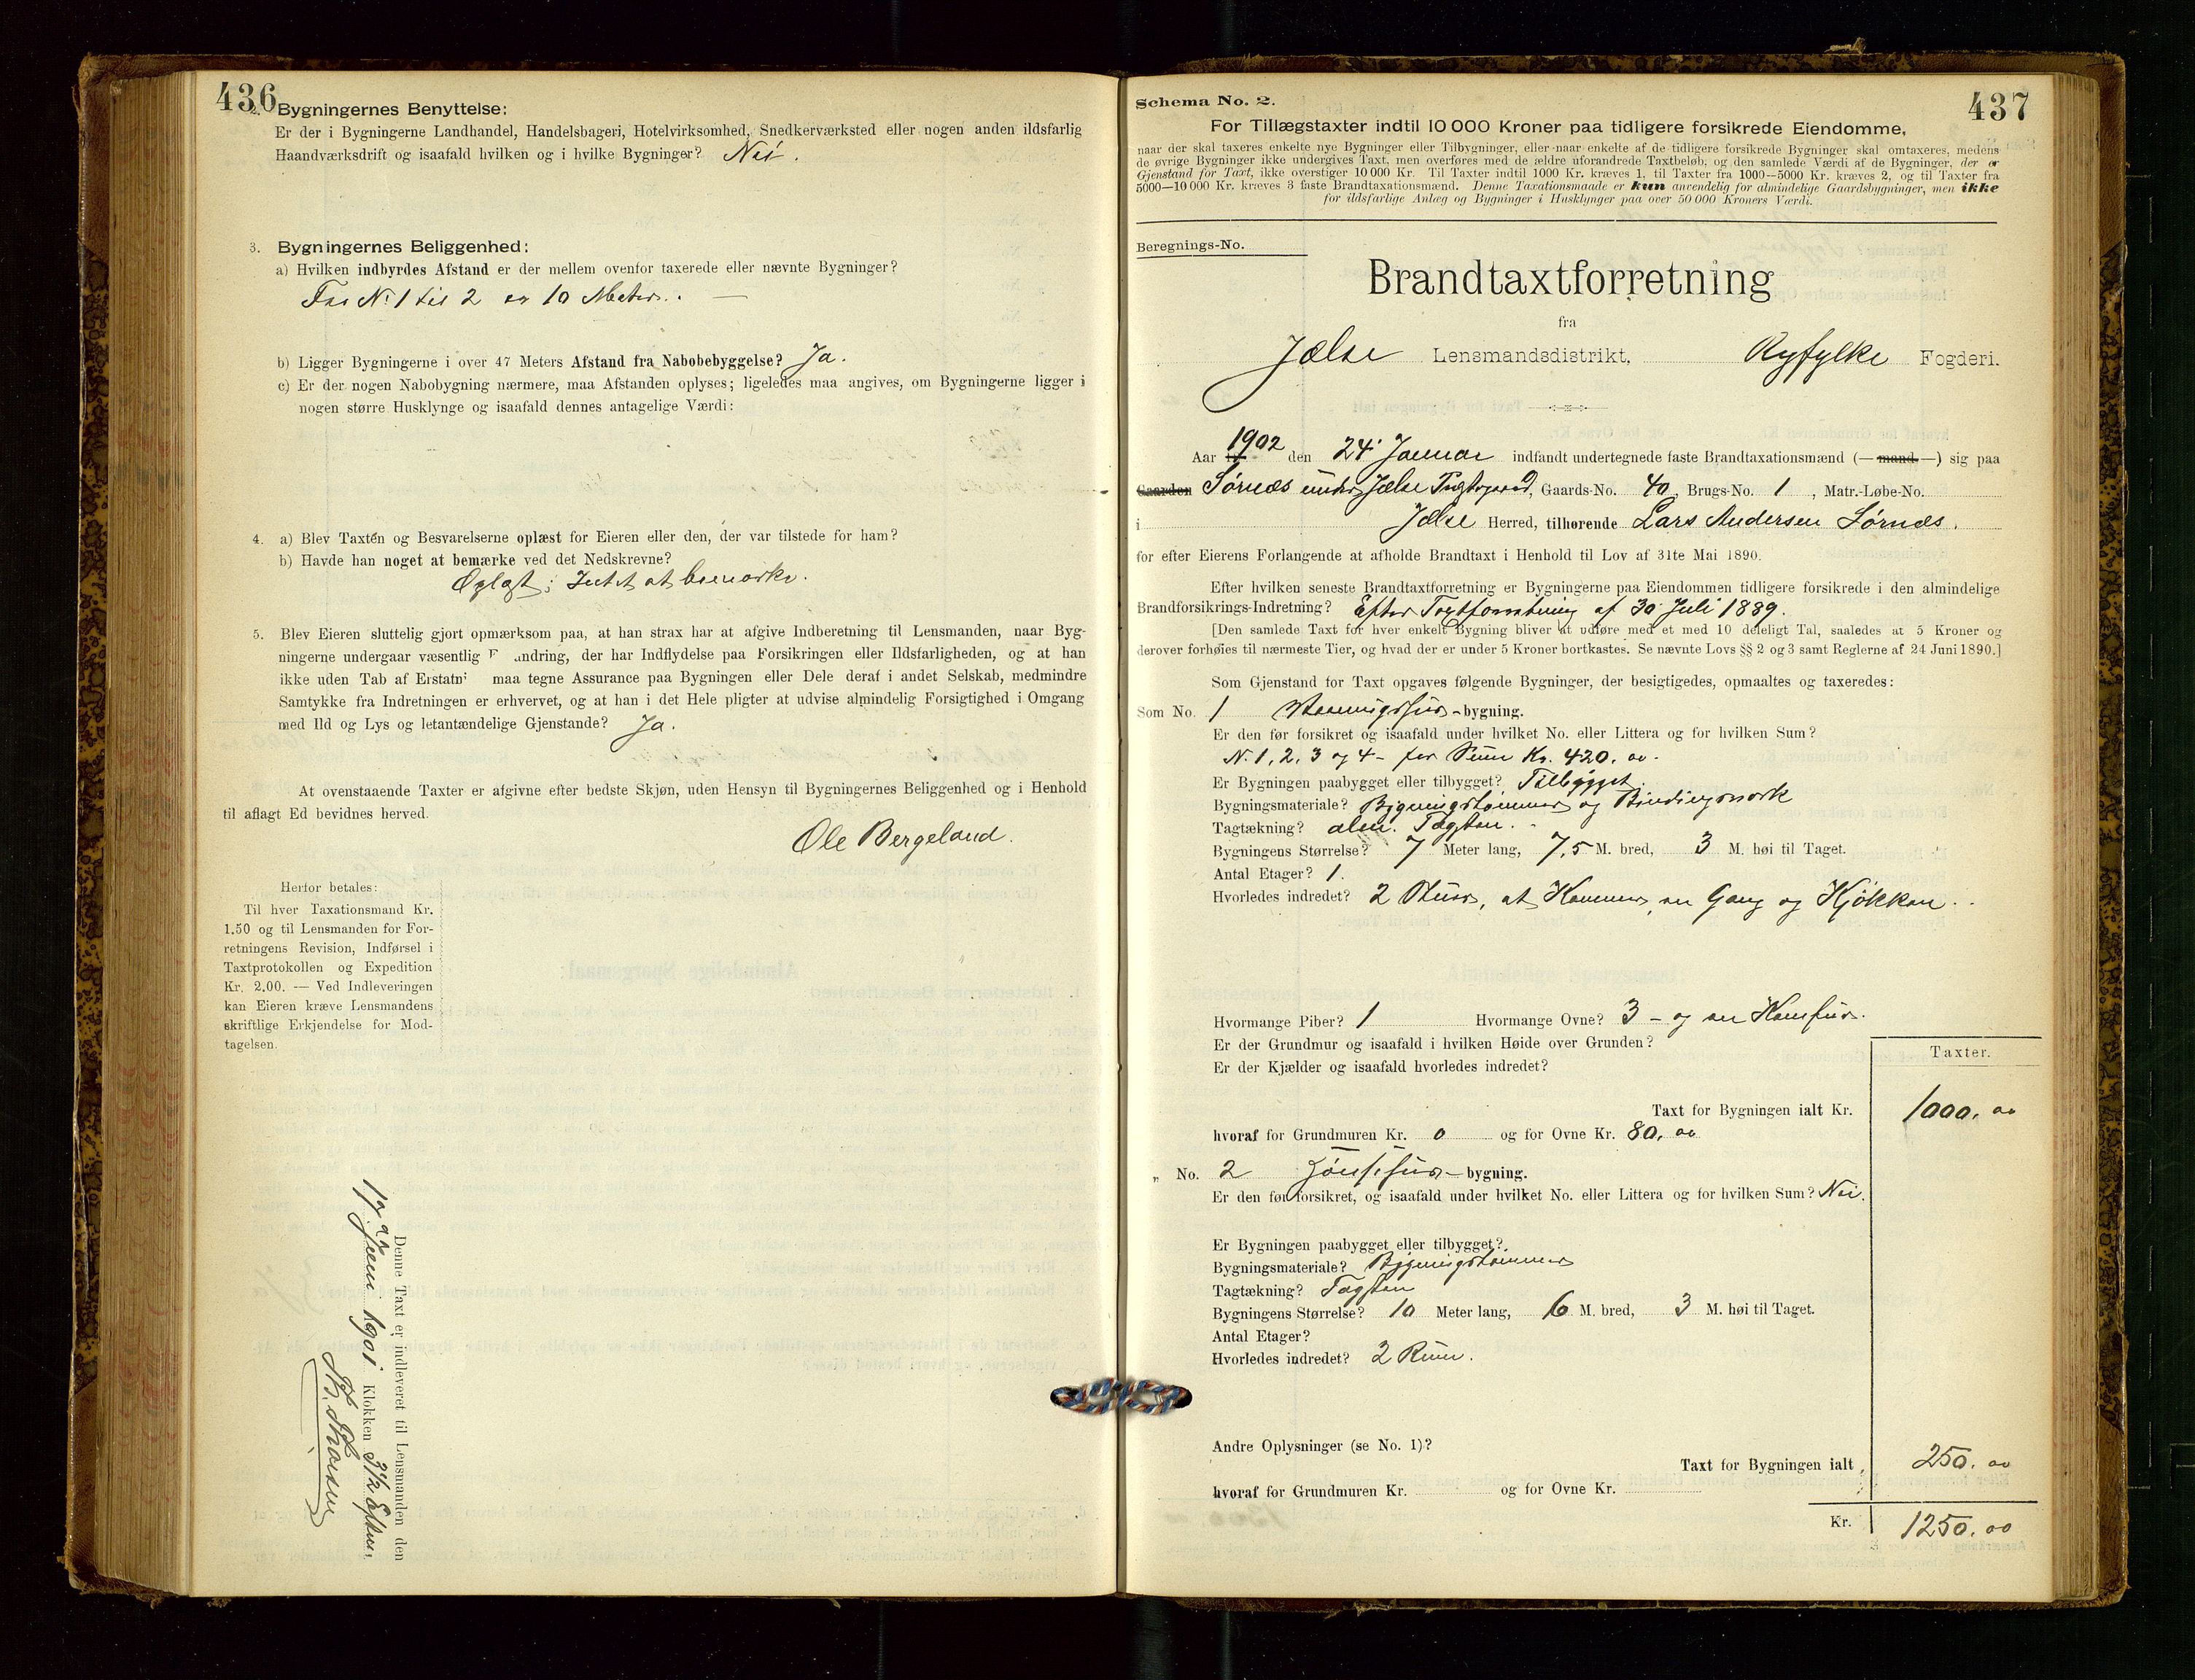 436
2. Bygningernes Benyttelse:
Er der i Bygningerne Landhandel, Handelsbageri, Hotelvirksomhed, Snedkerværksted eller nogen anden ildsfarlig
Haandværksdrift og isaafald hvilken og i hvilke Bygninger? Nei.
3. Bygningernes Beliggenhed:
a) Hvilken indbyrdes Afstand er der mellem ovenfor taxerede eller nævnte Bygninger?
Fra No 1 til 2 er 10 Meter. —
b) Ligger Bygningerne i over 47 Meters Afstand fra Nabobebyggelse? Ja.
c) Er der nogen Nabobygning nærmere, maa Afstanden oplyses; ligeledes maa angives, om Bygningerne ligger i
nogen større Husklynge og isaafald dennes antagelige Værdi:
4. a) Blev Taxten og Besvarelserne oplæst for Eieren eller den, der var tilstede for ham?
b) Havde han noget at bemærke ved det Nedskrevne?
Oplæst; Intet at bemærke.
5. Blev Eieren sluttelig gjort opmærksom paa, at han strax har at afgive Indberetning til Lensmanden, naar Byg-
ningerne undergaar væsentlig F andring, der har Indflydelse paa Forsikringen eller Ildsfarligheden, og at han
ikke uden Tab af Erstatn maa tegne Assurance paa Bygningen eller Dele deraf i andet Selskab, medmindre
Samtykke fra Indretningen er erhvervet, og at han i det Hele pligter at udvise almindelig Forsigtighed i Omgang
med Ild og Lys og letantændelige Gjenstande? Ja.
At ovenstaaende Taxter er afgivne efter bedste Skjøn, uden Hensyn til Bygningernes Beliggenhed og i Henhold
til aflagt Ed bevidnes herved.
Ole Bergeland.
Herfor betales:
Til hver Taxationsmand Kr.
1.50 og til Lensmanden for For-
retningens Revision, Indførsel i
Taxtprotokollen og Expedition
Kr. 2.00. — Ved Indleveringen
kan Eieren kræve Lensmandens
skriftlige Erkjendelse for Mod-
tagelsen.
Denne Taxt er indleveret til Lensmanden den
17de Juni 1901 Klokken 3 1/2 Efterm.
437
Schema No. 2.
For Tillægstaxter indtil 10 000 Kroner paa tidligere forsikrede Eiendomme,
naar der skal taxeres enkelte nye Bygninger eller Tilbygninger, eller naar enkelte af de tidligere forsikrede Bygninger skal omtaxeres, medens
de øvrige Bygninger ikke undergives Taxt, men overføres med de ældre uforandrede Taxtbeløb, og den samlede Værdi af de Bygninger, der er
Gjenstand for Taxt, ikke overstiger 10 000 Kr. Til Taxter indtil 1000 Kr. kræves 1, til Taxter fra 1000—5000 Kr. kræves 2, og til Taxter fra
5000—10 000 Kr. kræves 3 faste Brandtaxationsmænd. Denne Taxationsmaade er kun anvendelig for almindelige Gaardsbygninger, men ikke
for ildsfarlige Anlæg og Bygninger i Husklynger paa over 50 000 Kroners Værdi.
Beregnings-No.
Brandtaxtforretning
fra
Jælse Lensmandsdistrikt, Ryfylke Fogderi.
Aar 1902 den 24' Januar indfandt undertegnede faste Brandtaxationsmænd (— mand —) sig paa
Gaarden Sørnæs under Jælse Prestegaard, Gaards-No. 40, Brugs-No. 1, Matr.-Løbe-No.
i Jælse Herred, tilhørende Lars Andersen Sørnæs.
for efter Eierens Forlangende at afholde Brandtaxt i Henhold til Lov af 31te Mai 1890.
Efter hvilken seneste Brandtaxtforretning er Bygningerne paa Eiendommen tidligere forsikrede i den almindelige
Brandforsikrings-Indretning? Efter Taxtforretning af 30 Juli 1889.
[Den samlede Taxt for hver enkelt Bygning bliver at udføre med et med 10 deleligt Tal, saaledes at 5 Kroner og
derover forhøies til nærmeste Tier, og hvad der er under 5 Kroner bortkastes. Se nævnte Lovs §§ 2 og 3 samt Reglerne af 24 Juni 1890.]
Som Gjenstand for Taxt opgaves følgende Bygninger, der besigtigedes, opmaaltes og taxeredes:
Som No. 1 Vaaningshus-bygning.
Er den før forsikret og isaafald under hvilket No. eller Littera og for hvilken Sum?
No. 1, 2, 3 og 4 – for Sum Kr. 420,00.
Er Bygningen paabygget eller tilbygget? Tilbygget.
Bygningsmateriale? Bygningstømmer og Bindingsverk
Tagtækning? alm. Tagsten.
Bygningens Størrelse? 7 Meter lang, 7,5 M. bred, 3 M. høi til Taget.
Antal Etager? 1.
Hvorledes indredet? 2 Stuer, et Kammer, en Gang og Kjøkken.
Hvormange Piber? 1 Hvormange Ovne? 3 – og en Komfur.
Er der Grundmur og isaafald i hvilken Høide over Grunden?
Er der Kjælder og isaafald hvorledes indredet?
Taxter.
Taxt for Bygningen ialt Kr. 1000,00
hvoraf for Grundmuren Kr. 0 og for Ovne Kr. 80,00
„ No. 2 -bygning.
Er den før forsikret, og isaafald under hvilket No. eller Littera og for hvilken Sum? Nei.
Er Bygningen paabygget eller tilbygget?
Bygningsmateriale? Bygningstømmer
Tagtækning? Tagsten
Bygningens Størrelse? 10 Meter lang, 6 M. bred, 3 M. høi til Taget.
Antal Etager?
Hvorledes indredet? 2 Rum.
Andre Oplysninger (se No. 1)?
Taxt for Bygningen ialt „ 250,00
hvoraf for Grundmuren Kr. og for Ovne Kr.
Kr. 1250,00